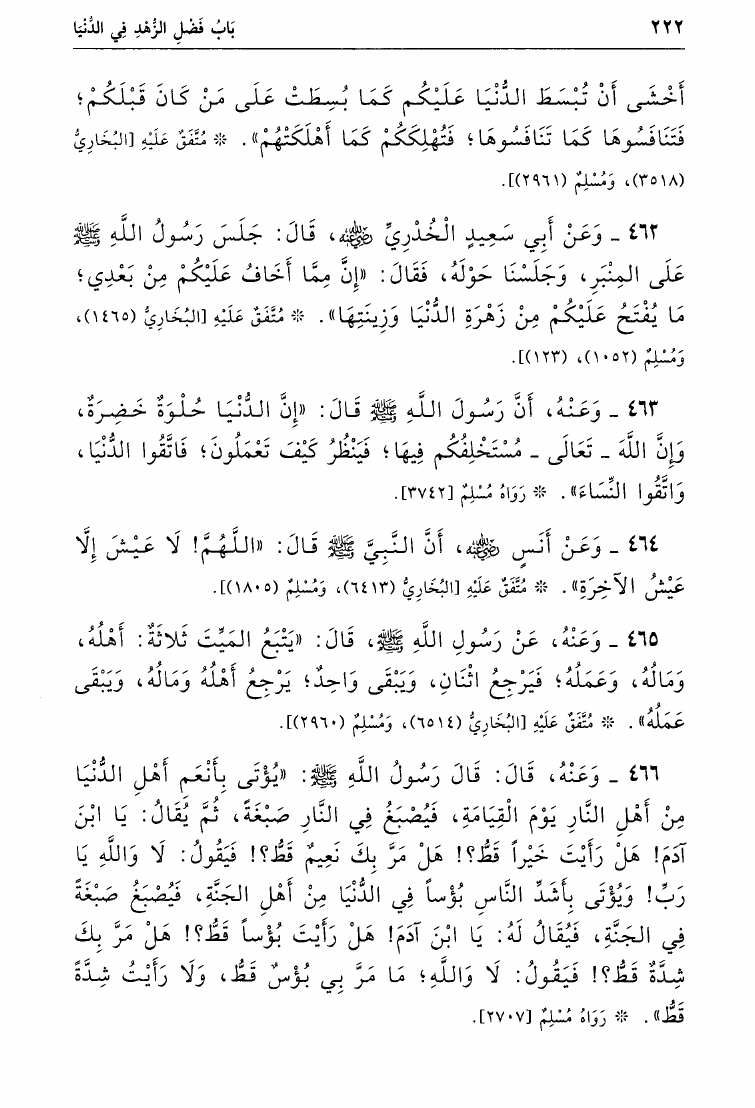 ٢٢٢ بَابُ فَضْلِ الزُّهْدِ فِي الدُّنْيَا
أَخْشَى أَنْ تُبْسَطَ الدُّنْيَا عَلَيْكُم كَمَا بُسِطَتْ عَلَى مَنْ كَانَ قَبْلَكُمْ؛
فَتَنَافَسُوهَا كَمَا تَنَافَسُوهَا؛ فَتُهْلِكَكُمْ كَمَا أَهْلَكَتْهُمْ». * مُتَّفَقٌ عَلَيْهِ [البُخَارِيُّ
(٣٥١٨)، وَمُسْلِمٌ (٢٩٦١)].
٤٦٢ ـ وَعَنْ أَبِي سَعِيدٍ الْخُدْرِيِّ رضي الله عنه، قَالَ: جَلَسَ رَسُولُ اللَّهِ ﷺ
عَلَى المِنْبَرِ، وَجَلَسْنَا حَوْلَهُ، فَقَالَ: «إِنَّ مِمَّا أَخَافُ عَلَيْكُمْ مِنْ بَعْدِي؛
مَا يُفْتَحُ عَلَيْكُمْ مِنْ زَهْرَةِ الدُّنْيَا وَزِينَتِهَا». * مُتَّفَقٌ عَلَيْهِ [البُخَارِيُّ (١٤٦٥)،
وَمُسْلِمٌ (١٠٥٢)، (١٢٣)].
٤٦٣ ـ وَعَنْهُ، أَنَّ رَسُولَ اللَّهِ ﷺ قَالَ: «إِنَّ الدُّنْيَا حُلْوَةٌ خَضِرَةٌ،
وَإِنَّ اللَّهَ ـ تَعَالَى ـ مُسْتَخْلِفُكُم فِيهَا؛ فَيَنْظُرُ كَيْفَ تَعْمَلُونَ؛ فَاتَّقُوا الدُّنْيَا،
وَاتَّقُوا النِّسَاءَ». * رَوَاهُ مُسْلِمٌ [٣٧٤٢].
٤٦٤ ـ وَعَنْ أَنَسٍ رضي الله عنه، أَنَّ النَّبِيَّ ﷺ قَالَ: «اللَّهُمَّ! لَا عَيْشَ إِلَّا
عَيْشُ الآخِرَةِ». * مُتَّفَقٌ عَلَيْهِ [البُخَارِيُّ (٦٤١٣)، وَمُسْلِمٌ (١٨٠٥)].
٤٦٥ ـ وَعَنْهُ، عَنْ رَسُولِ اللَّهِ ﷺ، قَالَ: «يَتْبَعُ المَيِّتَ ثَلاثَةٌ: أَهْلُهُ،
وَمَالُهُ، وَعَمَلُهُ؛ فَيَرْجِعُ اثْنَانِ، وَيَبْقَى وَاحِدٌ؛ يَرْجِعُ أَهْلُهُ وَمَالُهُ، وَيَبْقَى
عَمَلُهُ». * مُتَّفَقٌ عَلَيْهِ [البُخَارِيُّ (٦٥١٤)، وَمُسْلِمٌ (٢٩٦٠)].
٤٦٦ ـ وَعَنْهُ، قَالَ: قَالَ رَسُولُ اللَّهِ ﷺ: «يُؤْتَى بِأَنْعَمِ أَهْلِ الدُّنْيَا
مِنْ أَهْلِ النَّارِ يَوْمَ الْقِيَامَةِ، فَيُصْبَغُ فِي النَّارِ صَبْغَةً، ثُمَّ يُقَالُ: يَا ابْنَ
آدَمَ! هَلْ رَأَيْتَ خَيْراً قَطُّ؟! هَلْ مَرَّ بِكَ نَعِيمٌ قَطُّ؟! فَيَقُولُ: لَا وَاللَّهِ يَا
رَبِّ! وَيُؤْتَى بِأَشَدِّ النَّاسِ بُؤْساً فِي الدُّنْيَا مِنْ أَهْلِ الجَنَّةِ، فَيُصْبَغُ صَبْغَةً
فِي الجَنَّةِ، فَيُقَالُ لَهُ: يَا ابْنَ آدَمَ! هَلْ رَأَيْتَ بُؤْساً قَطُّ؟! هَلْ مَرَّ بِكَ
شِدَّةٌ قَطُّ؟! فَيَقُولُ: لَا وَاللَّهِ؛ مَا مَرَّ بِي بُؤْسٌ قَطُّ، وَلَا رَأَيْتُ شِدَّةً
قَطُّ». * رَوَاهُ مُسْلِمٌ [٢٧٠٧].